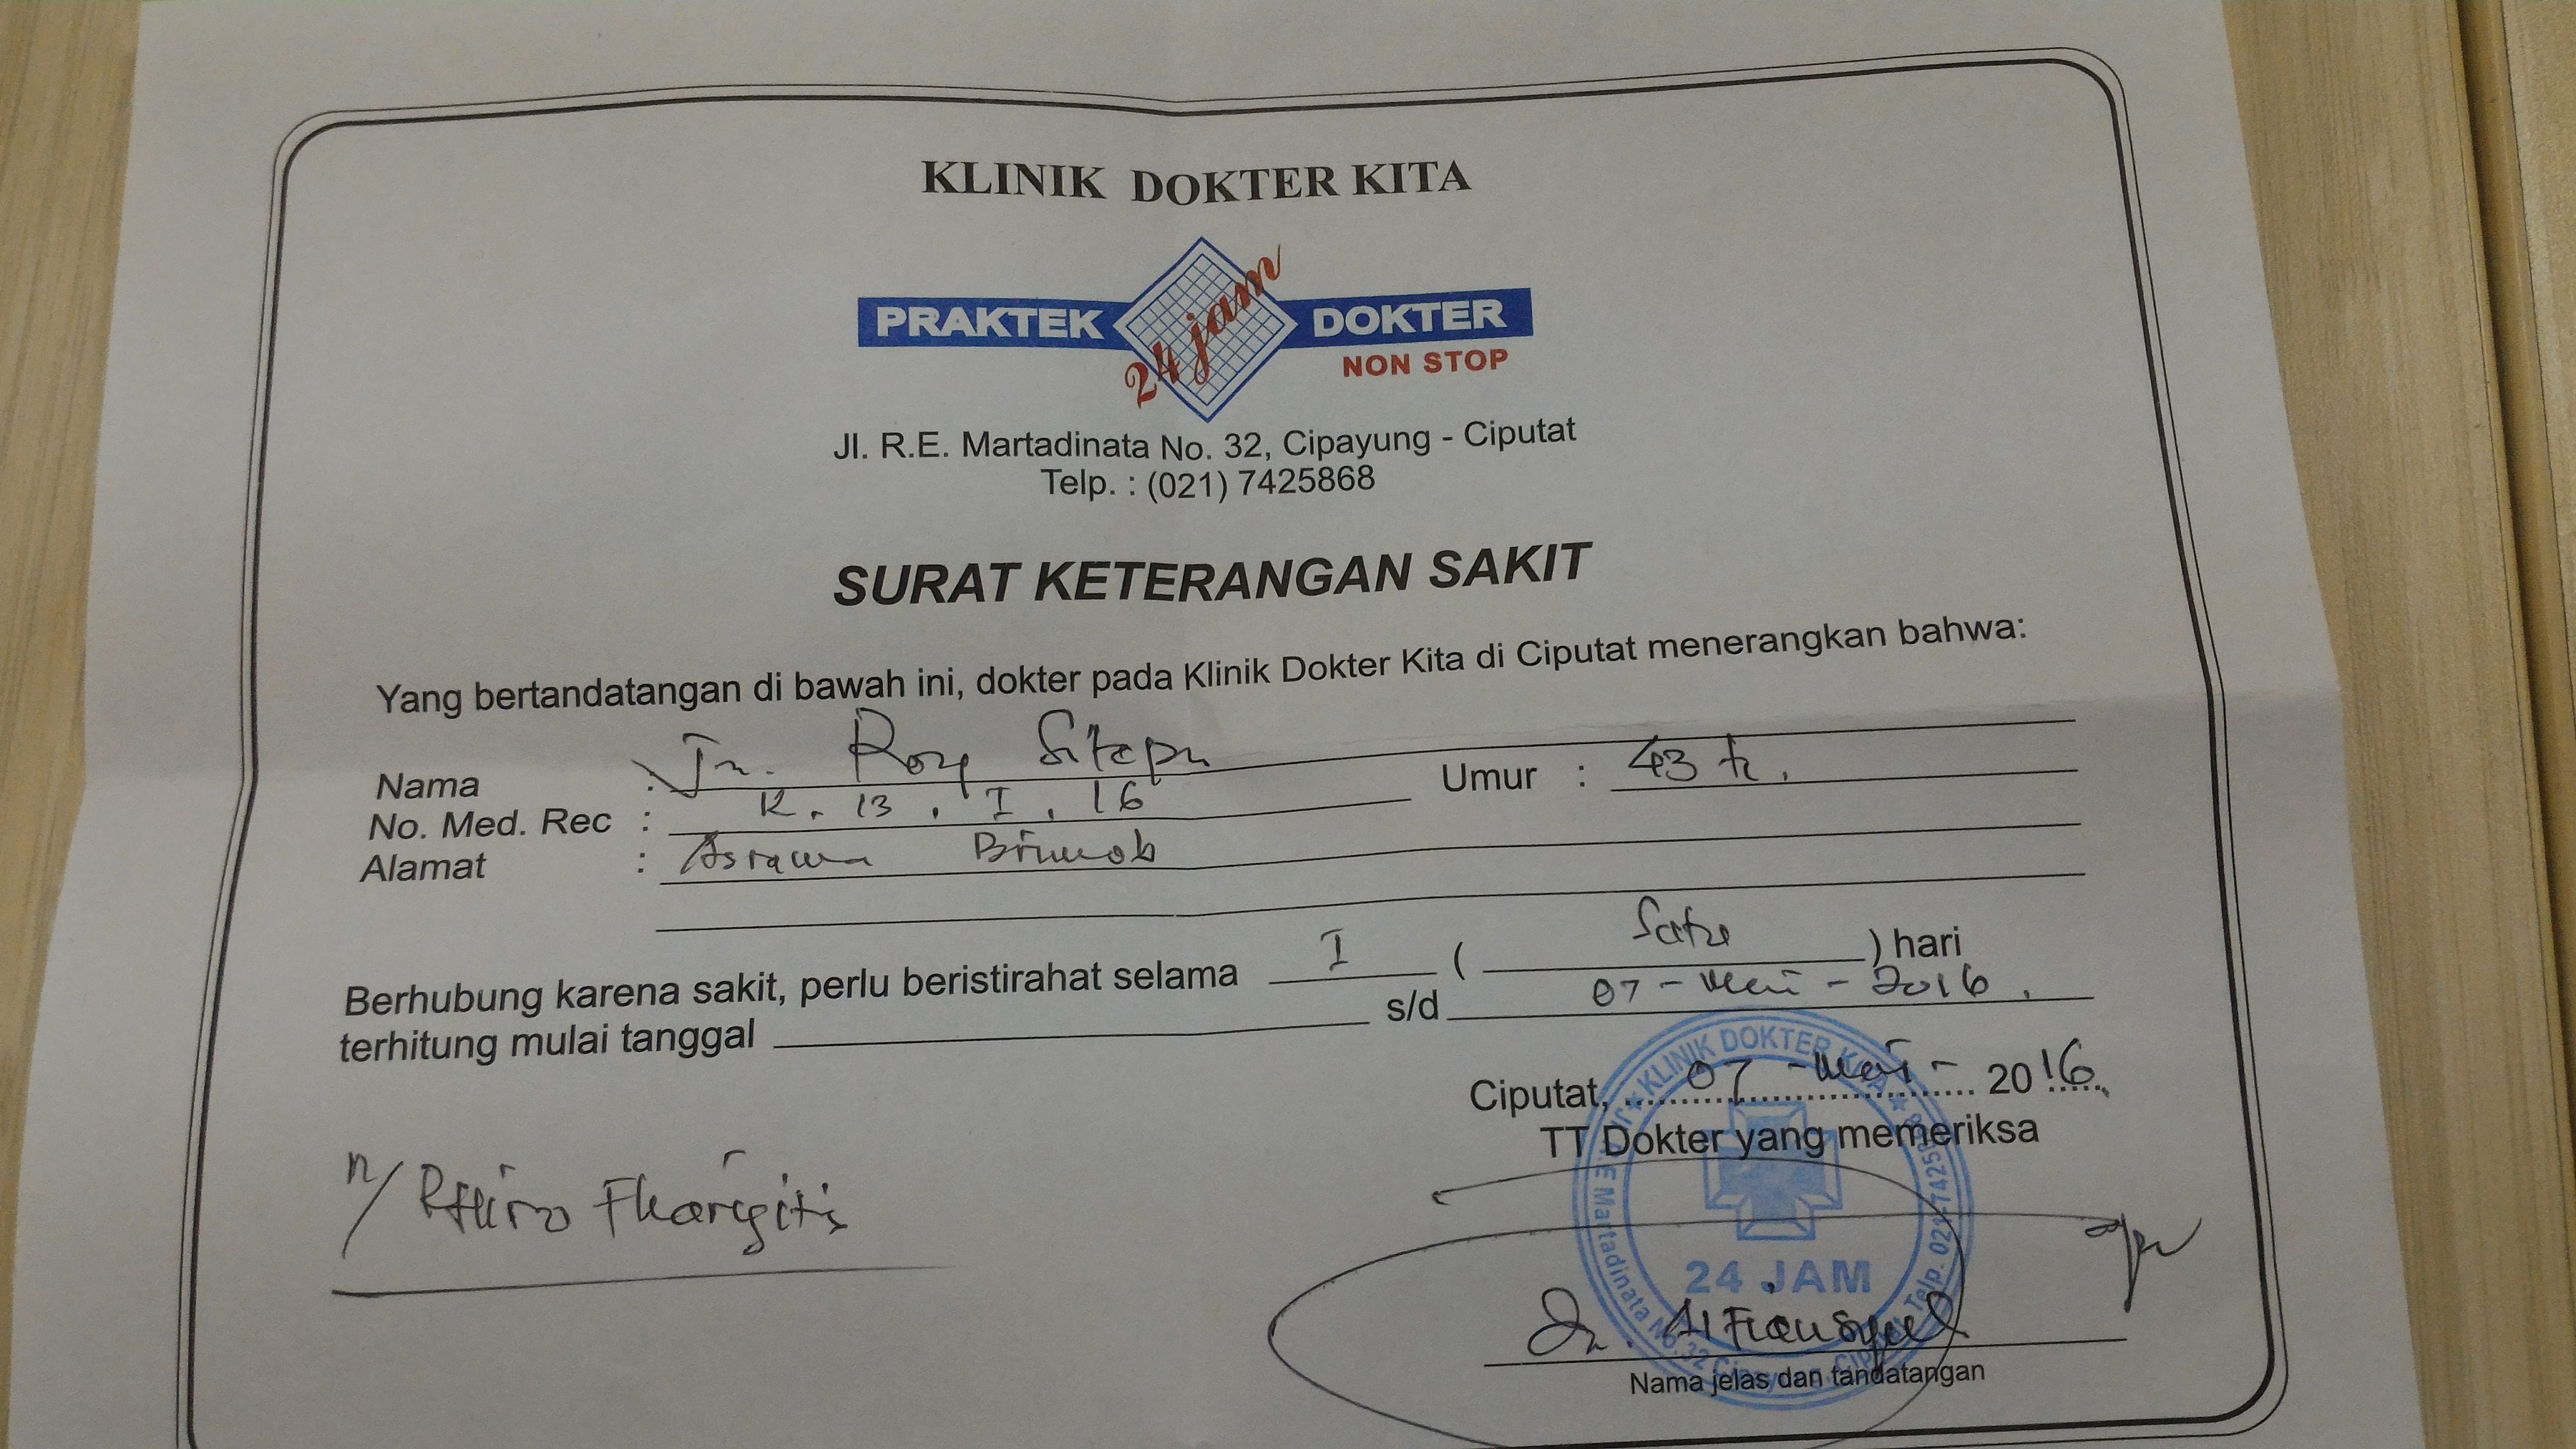 KLINIK DOKTER KITA
PRAKTEK 24 jam DOKTER
NON STOP
Jl. R.E. Martadinata No. 32, Cipayung - Ciputat
Telp. : (021) 7425868
SURAT KETERANGAN SAKIT
Yang bertandatangan di bawah ini, dokter pada Klinik Dokter Kita di Ciputat menerangkan bahwa:
Nama : Tn. Rony Sitepu
No. Med. Rec : K. 13. I. 16 Umur : 43 th.
Alamat : Asrama Brimob
Berhubung karena sakit, perlu beristirahat selama I ( Satu ) hari
terhitung mulai tanggal s/d 07 - Mei - 2016.
Ciputat, 07 - Mei - 2016,
TT Dokter yang memeriksa
Pharingitis
KLINIK DOKTER
24 JAM
Dr.
Nama jelas dan tandatangan